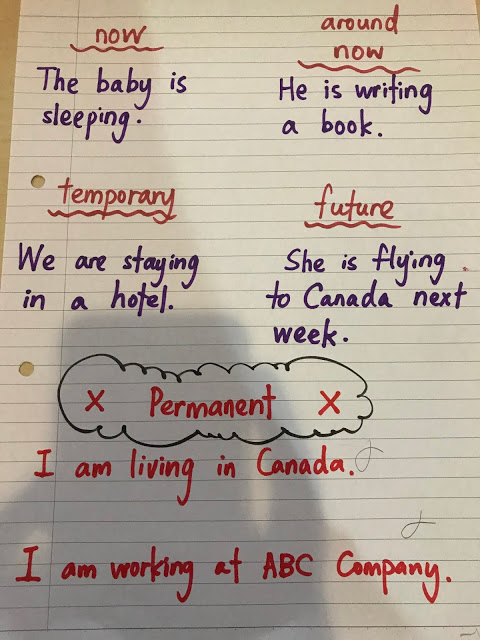 now
The baby is
sleeping.
around
now
He is writing
a book.
temporary
We are staying
in a hotel.
future
She is flying
to Canada next
week.
X Permanent X
I am living in Canada.
I am working at ABC Company.